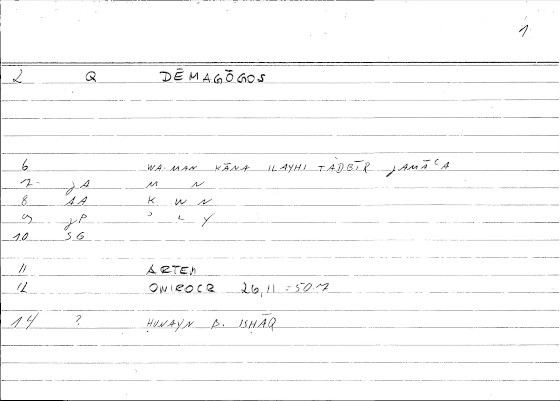 1
2 Q DĒMAGŌGOS
6 WA-MAN KĀNA ILAYHI TADBĪR JAMĀʿA
7 JA M N
8 AA K W N
9 JP ʾ L Y
10 SG
11 ARTEM
12 ONIROCR 26,11 = 50.7
14 ? ḤUNAYN B. ISḤĀQ